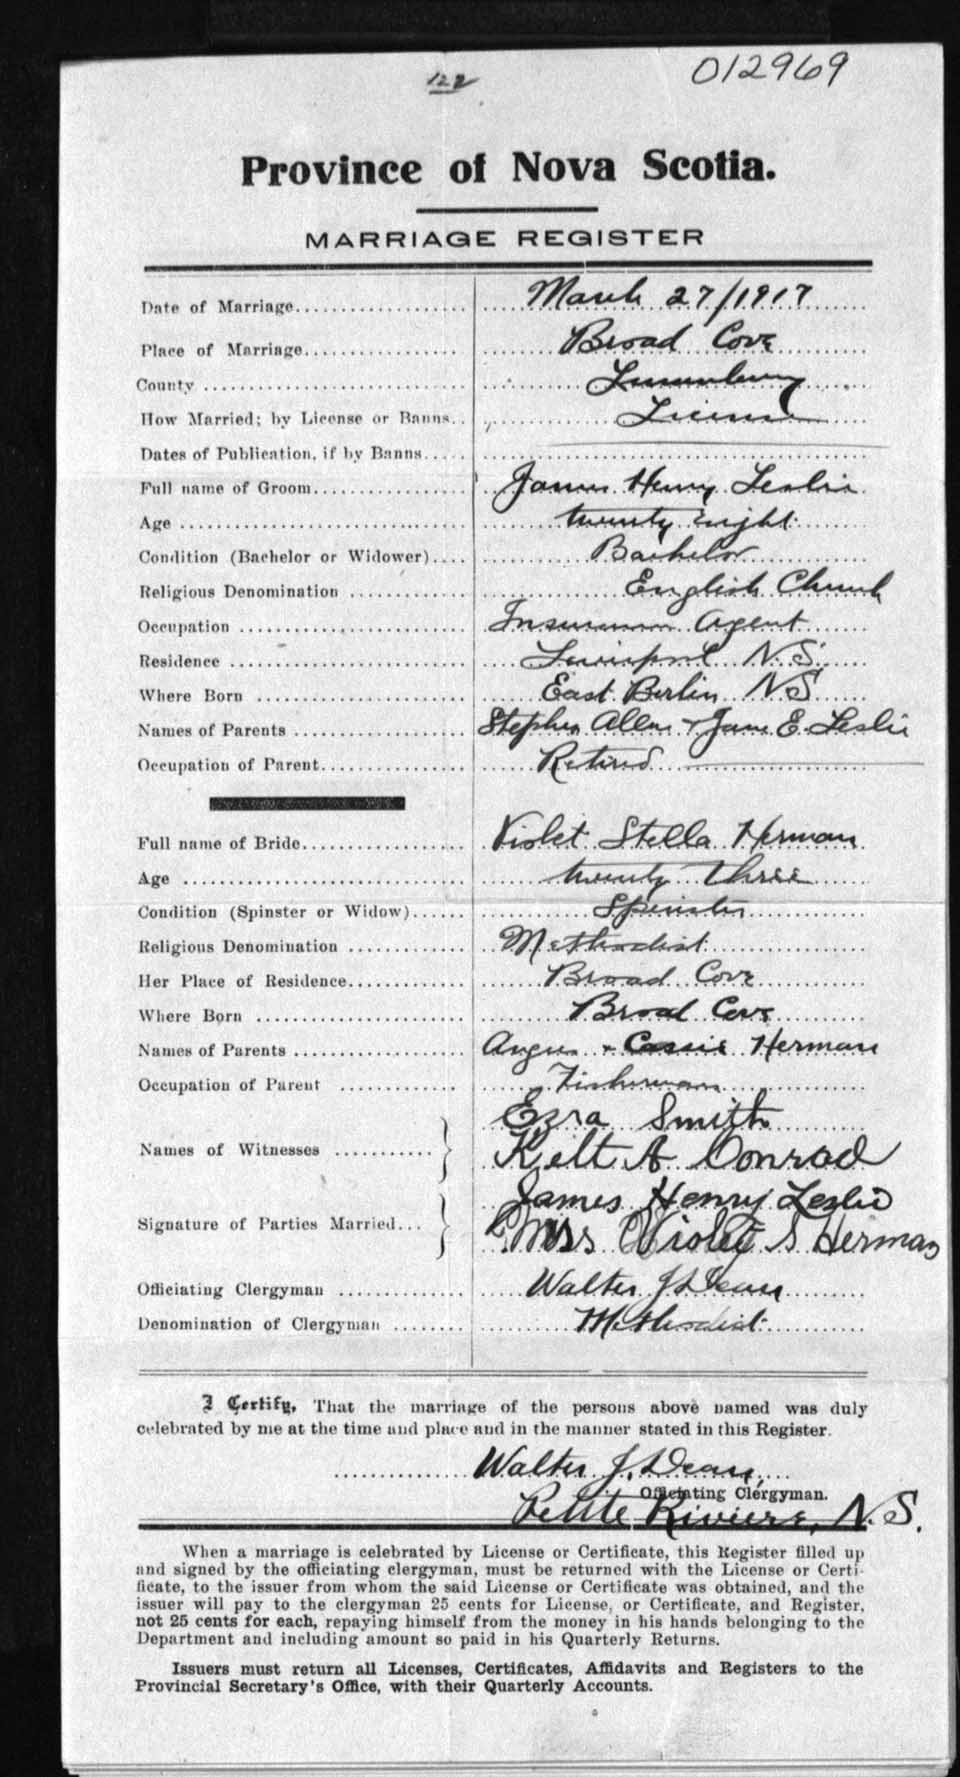 122
012969
Province of Nova Scotia.
MARRIAGE REGISTER
Date of Marriage March 27/1917
Place of Marriage Broad Cove
County Lunenburg
How Married; by License or Banns License
Dates of Publication, if by Banns
Full name of Groom James Henry Leslie
Age twenty eight
Condition (Bachelor or Widower) Bachelor
Religious Denomination English Church
Occupation Insurance Agent
Residence Liverpool N.S.
Where Born East Berlin NS
Names of Parents Stephen Allen + Jane E. Leslie
Occupation of Parent Retired
Full name of Bride Violet Stella Herman
Age twenty three
Condition (Spinster or Widow) Spinster
Religious Denomination Methodist
Her Place of Residence Broad Cove
Where Born Broad Cove
Names of Parents Angus + Cassie Herman
Occupation of Parent Fisherman
Names of Witnesses Ezra Smith
Kelt A Conrad
Signature of Parties Married James Henry Leslie
Miss Violet S Herman
Officiating Clergyman Walter J. Dean
Denomination of Clergyman Methodist
I Certify, That the marriage of the persons above named was duly
celebrated by me at the time and place and in the manner stated in this Register.
Walter J. Dean,
Officiating Clergyman.
Petite Riviere, N.S.
When a marriage is celebrated by License or Certificate, this Register filled up
and signed by the officiating clergyman, must be returned with the License or Certi-
ficate, to the issuer from whom the said License or Certificate was obtained, and the
issuer will pay to the clergyman 25 cents for License, or Certificate, and Register,
not 25 cents for each, repaying himself from the money in his hands belonging to the
Department and including amount so paid in his Quarterly Returns.
Issuers must return all Licenses, Certificates, Affidavits and Registers to the
Provincial Secretary's Office, with their Quarterly Accounts.